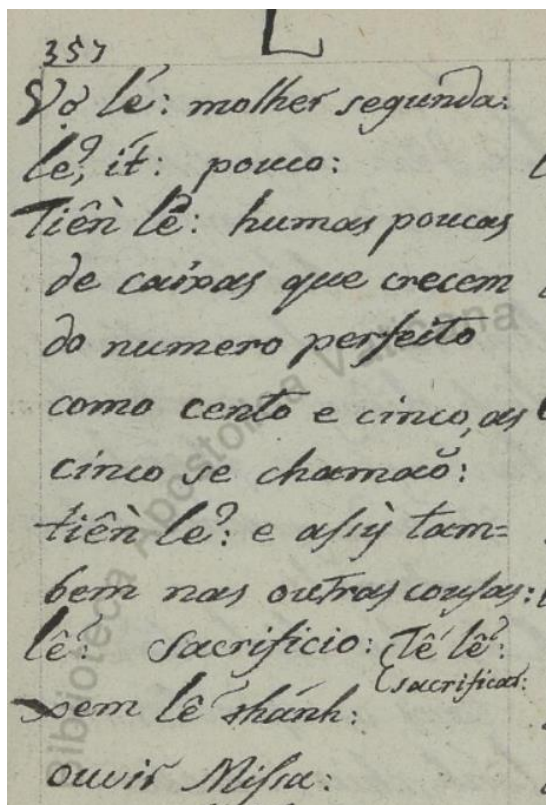 L
357
Vợ lẽ: molher segunda:
lẻ, ít: pouco:
Tiền lẻ: humas poucas
de caixas que crecem
do numero perfeito
como cento e cinco, as
cinco se chamaõ:
tiền lẻ: e assỳ tam=
bem nas outras cousas:
lễ: Sacrificio: Tế lễ:
(sacrificar:
xem lễ thánh:
ouvir Missa:
Biblioteca Apostolica Vaticana